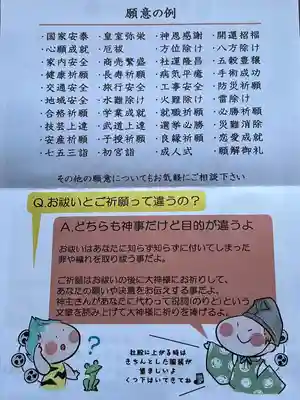 願意の例
・国家安泰 ・皇室弥栄 ・神恩感謝 ・開運招福
・心願成就 ・厄祓 ・方位除け ・八方除け
・家内安全 ・商売繁盛 ・社運隆昌 ・五穀豊穣
・健康祈願 ・長寿祈願 ・病気平癒 ・手術成功
・交通安全 ・旅行安全 ・工事安全 ・防災祈願
・地域安全 ・水難除け ・火難除け ・雷除け
・合格祈願 ・学業成就 ・就職祈願 ・必勝祈願
・技芸上達 ・武道上達 ・選挙必勝 ・災難消除
・安産祈願 ・子授祈願 ・良縁祈願 ・恋愛成就
・七五三詣 ・初宮詣 ・成人式 ・願解御礼
その他の願意についてもお気軽にご相談下さい
Q.お祓いとご祈願って違うの?
A.どちらも神事だけど目的が違うよ
お祓いはあなたに知らず知らずに付いてしまった
罪や穢れを取り祓う事だよ。
ご祈願はお祓いの後に大神様にお祈りして、
あなたの願いや決意をお伝えする事だよ。
神主さんがあなたに代わって祝詞(のりと)という
文章を読み上げて大神様に祈りを捧げるよ。
社殿に上がる時は
きちんとした服装が
望ましいよ
くつ下はいてきてね